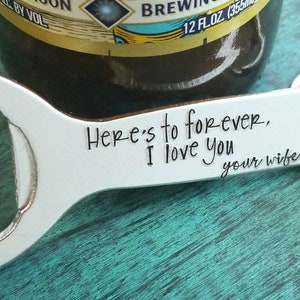 BY VOL
BREWING
12 FL.OZ. (355
Here's to forever,
I love you
your wife